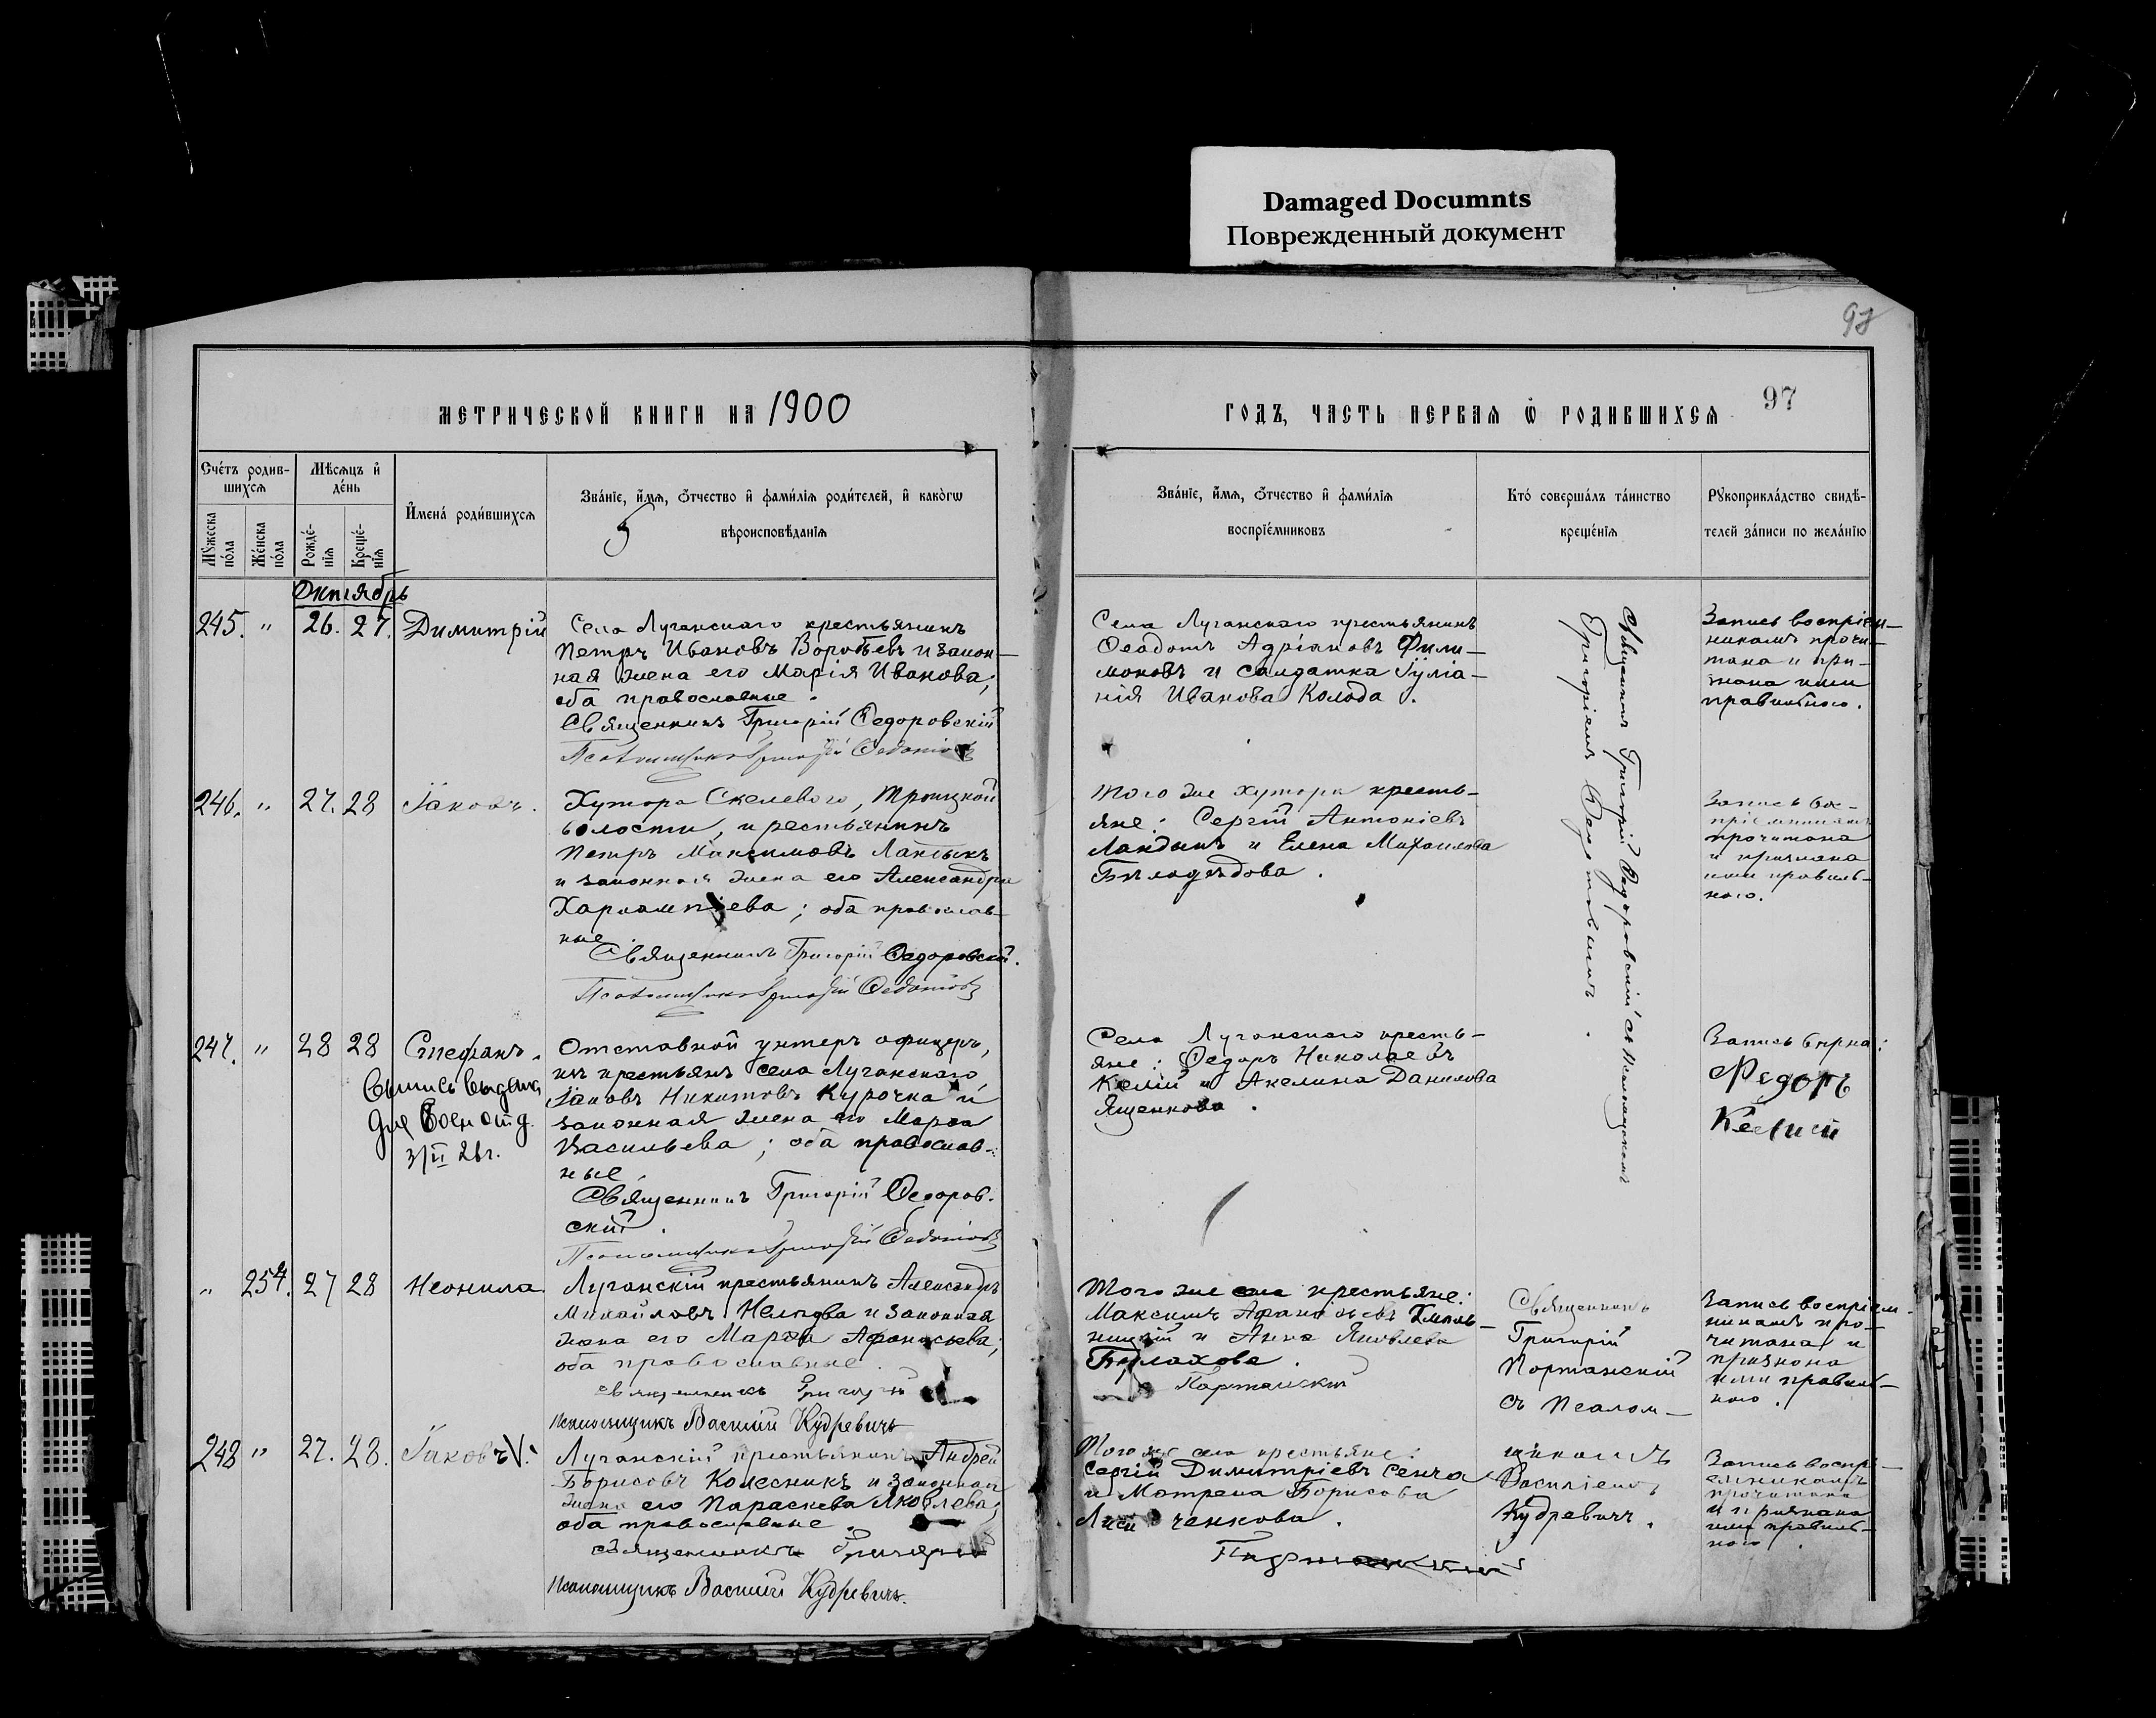 Damaged Documnts
Поврежденный документ
98
МЕТРИЧЕСКОЙ КНИГИ НА 1900
ГОДЪ, ЧАСТЬ ПЕРВАЯ Ѡ РОДИВШИХСЯ
97
Счéтъ родив-
шихсѧ
Мꙋ́жеска
по́ла
Же́нска
по́ла
Мѣ́сѧцъ и҆
де́нь
Рожде́-
нїѧ
Креще́-
нїѧ
И҆мена̀ роди́вшихсѧ
Зва́нїе, и҆́мѧ, ѻ҆́тчество и҆ фами́лїѧ роди́телей, и҆ како́гѡ
вѣроисповѣ́данїѧ
Зва́нїе, и҆́мѧ, ѻ҆́тчество и҆ фами́лїѧ
воспрїе́мниковъ
Кто̀ соверша́лъ та́инство
креще́нїѧ
Рꙋкоприкла́дство свидѣ́-
телей за́писи по жела́нїю
Октябрь
245. " 26. 27. Димитрій
Села Луганскаго крестьянинъ
Петръ Ивановъ Воробьевъ и закон-
ная жена его Марія Иванова,
оба православные.
Священникъ Григорій Ѳедоровскій
Псаломщикъ Григорій Ѳедотовъ
Села Луганскаго крестьянинъ
Ѳеодотъ Адріановъ Фили-
моновъ и солдатка Іуліа-
нія Иванова Колода.
Священникъ Григорій Ѳедоровскій съ псаломщикомъ
Григоріемъ Ѳедотовымъ.
Запись воспріем-
никамъ прочи-
тана и при-
знана ими
правильною.
246. " 27. 28 Іаковъ.
Хутора Скелеваго, Троицкой
волости, крестьянинъ
Петръ Максимовъ Лантыкъ
и законная жена его Александра
Харлампіева; оба православ-
ные.
Священникъ Григорій Ѳедоровскій.
Псаломщикъ Григорій Ѳедотовъ
Того же хутора кресть-
яне: Сергій Антоніевъ
Ландыкъ и Елена Михаилова
Бѣлодѣдова.
Запись вос-
пріемникамъ
прочитана
и признана
ими правиль-
ною.
247. " 28 28 Стефанъ.
Выпись выдана
для Воен отд.
3/II 26г.
Отставной унтеръ офицеръ,
изъ крестьянъ села Луганскаго,
Іаковъ Никитовъ Курочка и
законная жена его Марѳа
Васильева; оба православ-
ные.
Священникъ Григорій Ѳедоров-
скій.
Псаломщикъ Григорій Ѳедотовъ
Села Луганскаго кресть-
яне: Ѳедоръ Николаевъ
Келий и Акелина Данилова
Ященкова.
Запись вѣрна:
Федоръ
Келий
" 254. 27 28 Неонила
Луганскій крестьянинъ Александръ
Михайловъ и законная
жена его Марѳа Аѳанасьева;
оба православные.
священникъ Григорій
Портанскій
Псаломщикъ Василій Кудревичъ
Того же села крестьяне:
Максимъ Аѳанасьевъ Хмель-
ницкій и Анна Яковлева
Бурлахова.
Священникъ
Григорій
Портанскій
съ псалом-
щикомъ
Василіемъ
Кудревичъ.
Запись воспріем-
никамъ про-
читана и
признана
ими правиль-
ною.
248 " 27. 28. Іаковъ V.
Луганскій крестьянинъ Андрей
Борисовъ Колесникъ и законная
жена его Параскева Яковлева;
оба православные.
священникъ Григорій
Портанскій
Псаломщикъ Василій Кудревичъ.
Того же села крестьяне:
Сергій Димитріевъ Сенча
и Матрена Борисова
Лисиченкова.
Запись воспрі-
емникамъ
прочитана
и признана
ими правиль-
ною.